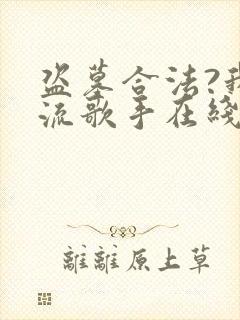 盗墓合法?我
流歌手在綫
離離原上草